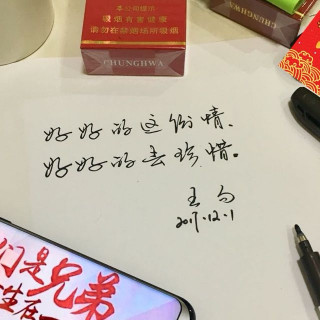 本公司提示
吸烟有害健康
请勿在禁烟场所吸烟
CHUNGHWA
CHUNGHWA
好好的这份情、
好好的去珍惜。
王
2017.12.1
们是兄弟
生在一